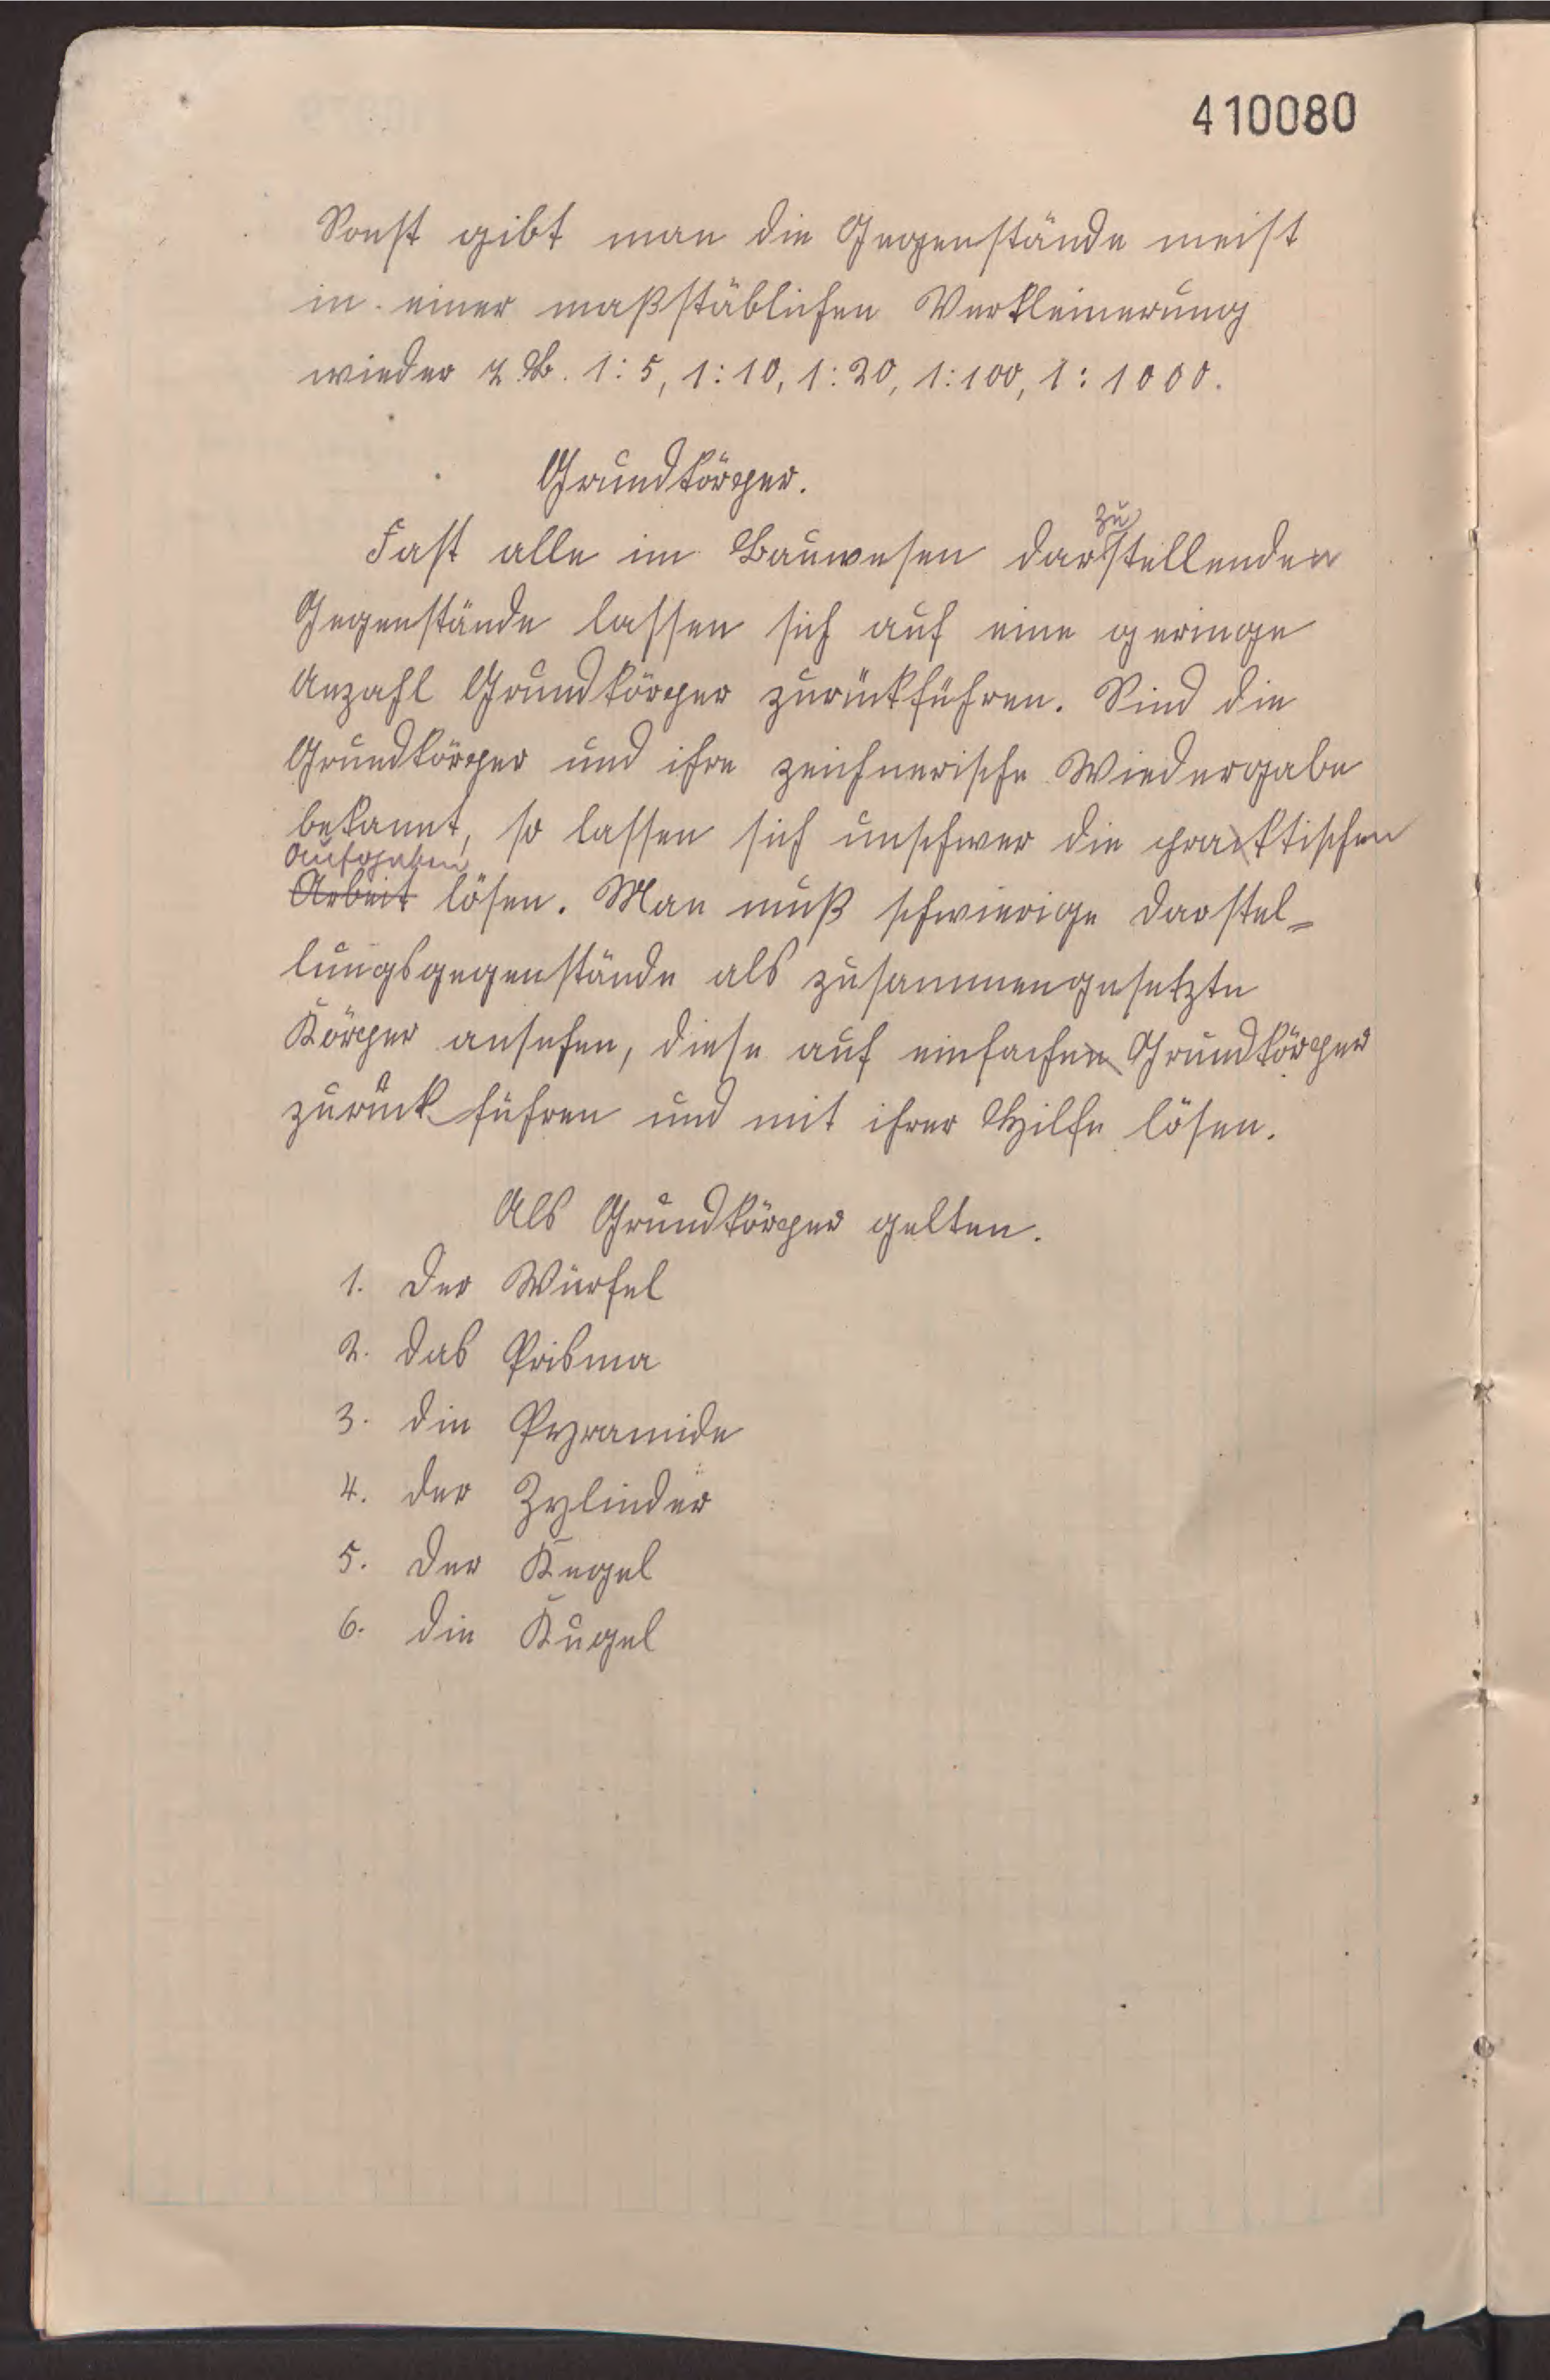 410080
Sonst gibt man die Gegenstände meist
in einer maßstäblichen Verkleinerung
wieder z. B. 1:5, 1:10, 1:20, 1:100, 1:1000.
Grundkörper.
zu
Fast alle im Bauwesen darstellenden
Gegenstände lassen sich auf eine geringe
Anzahl Grundkörper zurückführen. Sind die
Grundkörper und ihre zeichnerische Wiedergabe
bekannt, so lassen sich unschwer die praktischen
Aufgaben
Arbeit lösen. Man muß schwierige Darstel=
lungsgegenstände als zusammengesetzte
Körper ansehen, diese auf einfachen Grundkörper
zurück führen und mit ihrer Hilfe lösen.
Als Grundkörper gelten.
1. Der Würfel
2. Das Prisma
3. Die Pyramide
4. Der Zylinder
5. Der Kegel
6. Die Kugel